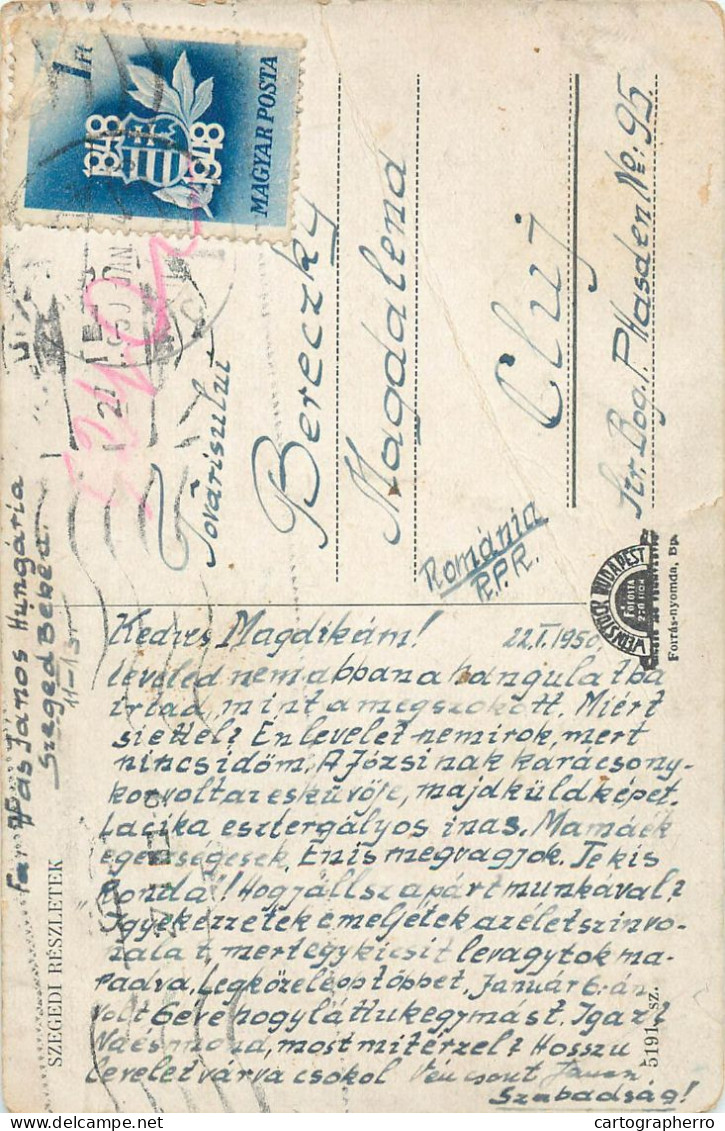 1 Ft
1848 1948
MAGYAR POSTA
Tovariszului
Bereczky
Magdalena
Cluj
Str. Bog. P. Hasden No: 95.
România
R.P.R.
Vas János Hungária
Szeged Béke u.
11-13
SZEGEDI RÉSZLETEK
Kedves Magdikám! 22.I.1950.
leveled nem abban a hangulatba
irtad, mint a megszokott. Miért
siettél? Én levelet nem irok, mert
nincs időm. A Józsinak karácsony-
kor volt az esküvője, majd küld képet.
Lacika esztergályos inas. Mamáék
egészségesek. Én is megvagyok. Te kis
"Ronda"! Hogy állsz a párt munkával?
Igyekezzetek emeljétek az életszinvo-
nalat, mert egy kicsit le vagytok ma-
radva. Legközelebb többet. Január 6.-án
volt 6 éve hogy láttuk egymást. Igaz?
Na és mond, most mit érzel? Hosszu
levelet várva csókol
Szabadság!
WEINSTOCK BUDAPEST
Forrás-nyomda, Bp.
5191. sz.
cartographerro